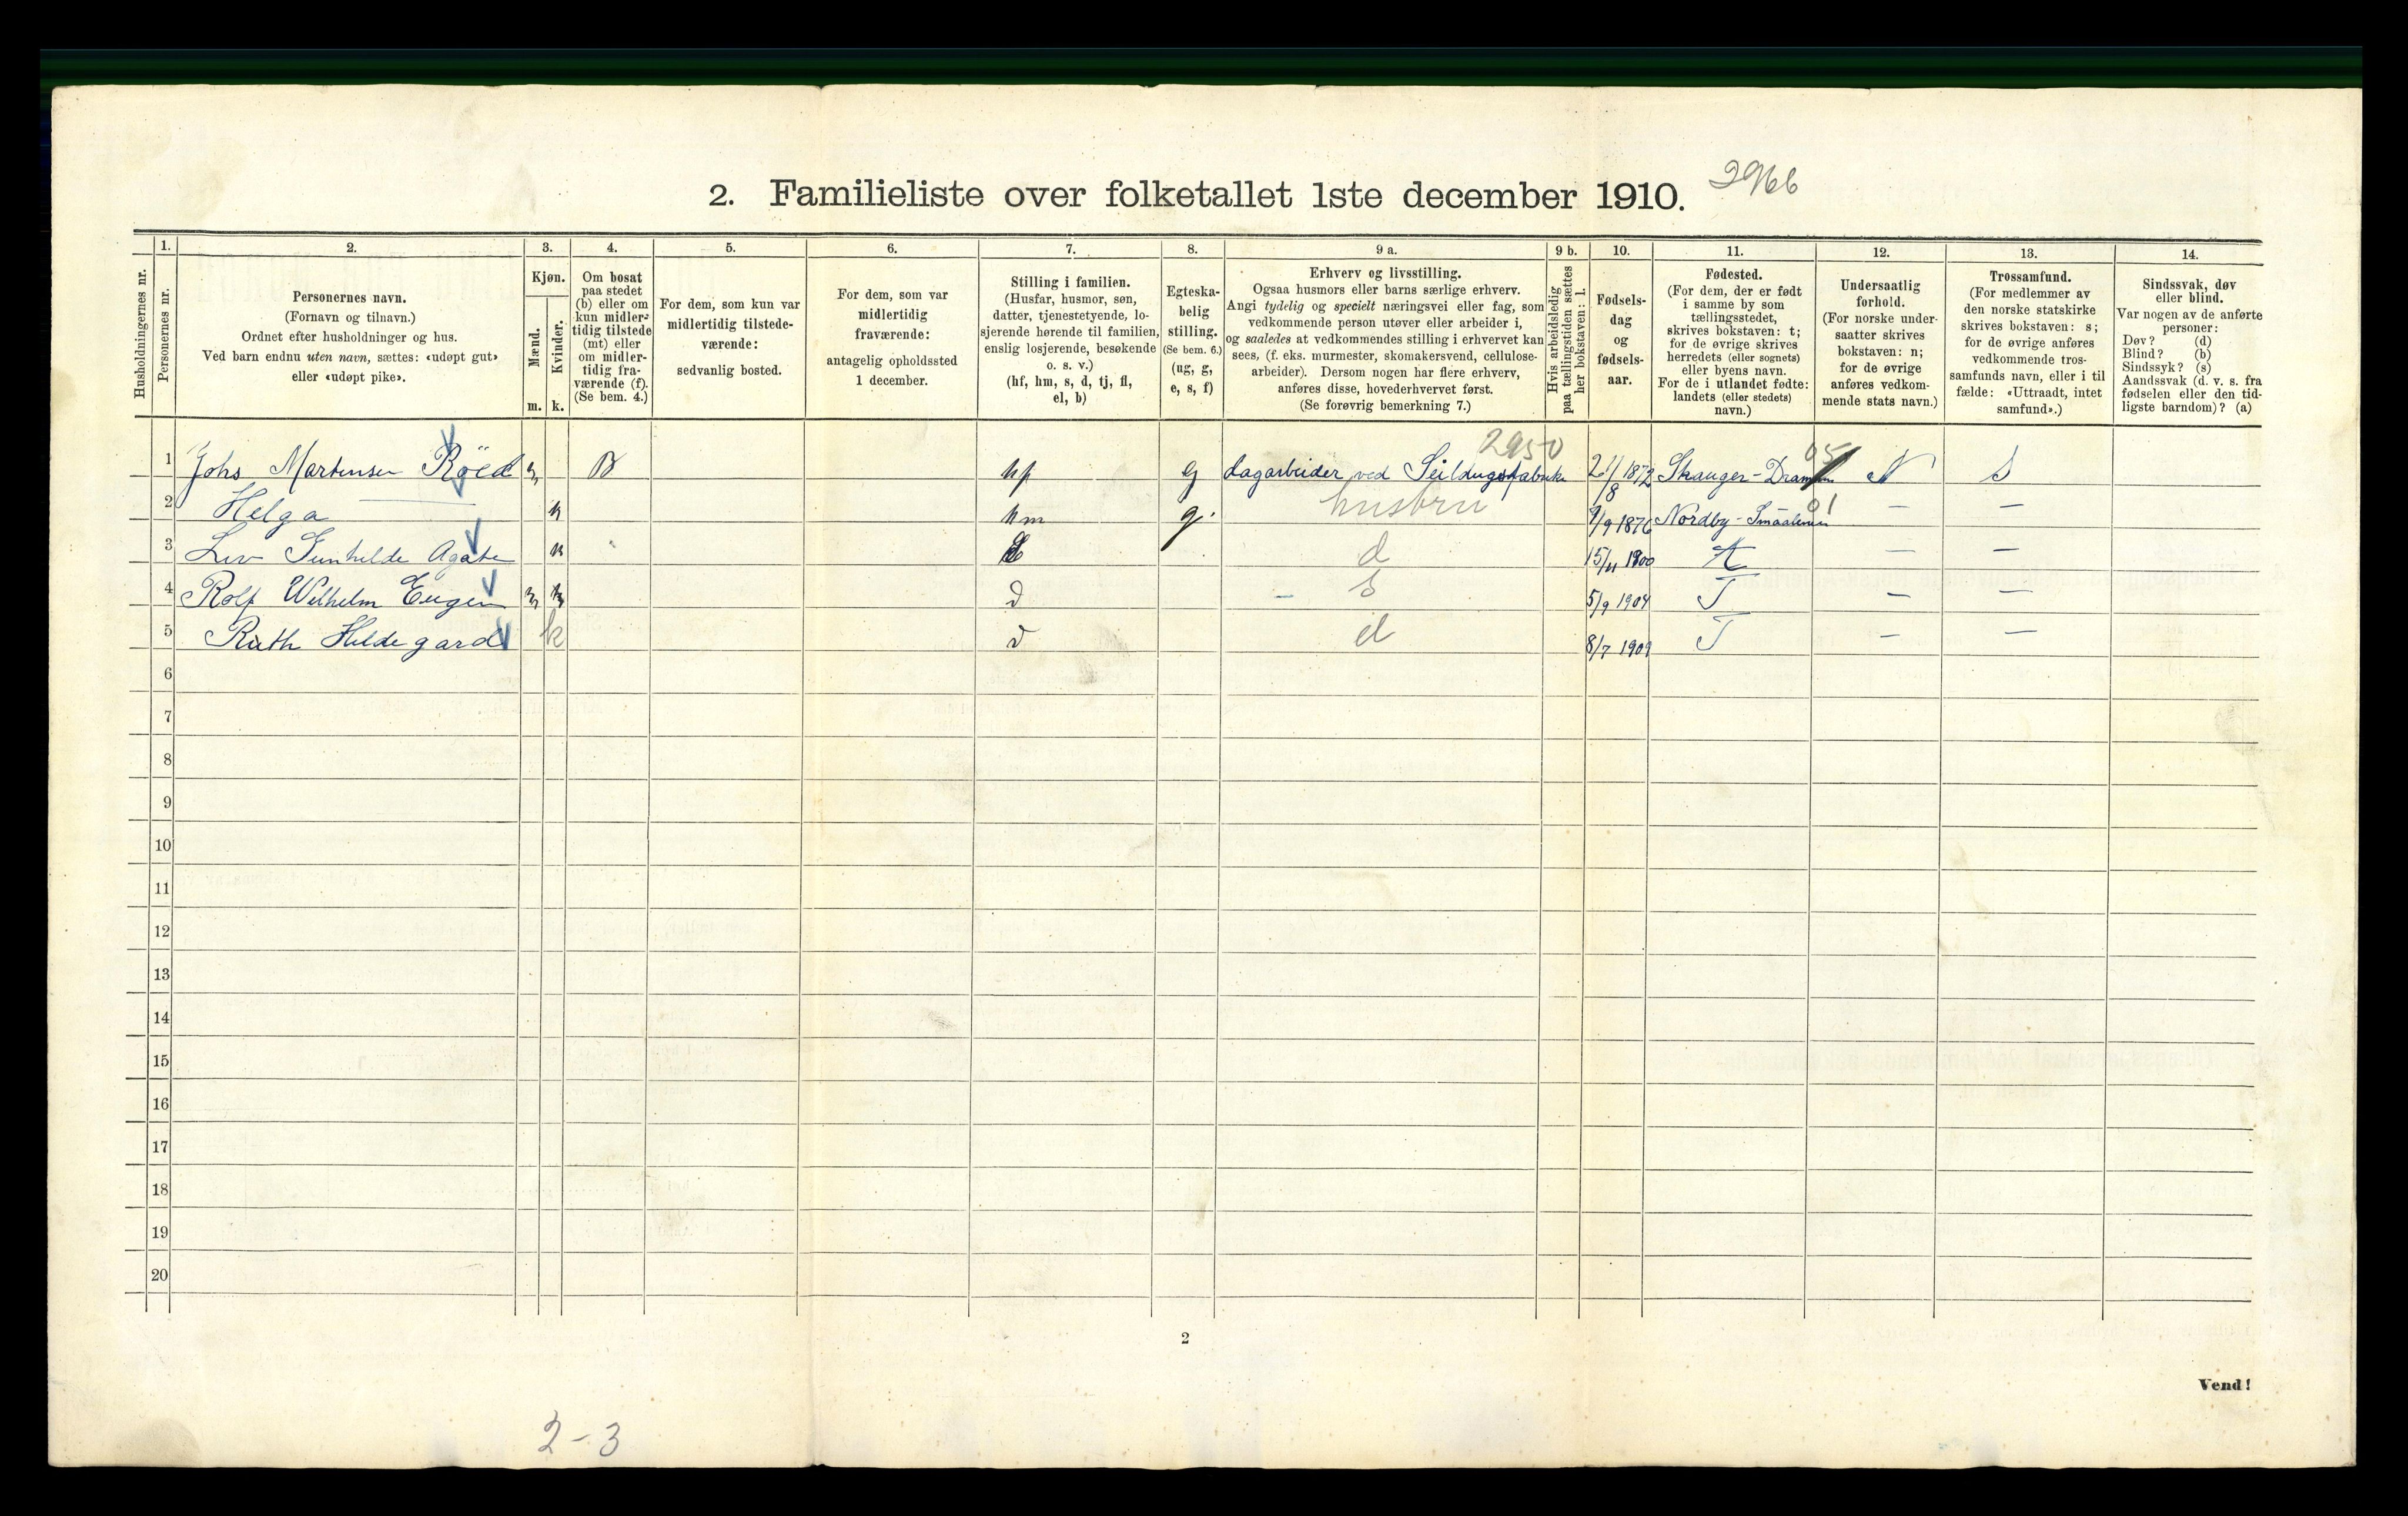 2. Familieliste over folketallet 1ste december 1910. 2966
Husholdningernes nr.
1.
Personernes nr.
2.
Personernes navn.
(Fornavn og tilnavn.)
Ordnet efter husholdninger og hus.
Ved barn endnu uten navn, sættes: «udøpt gut»
eller «udøpt pike».
3.
Kjøn.
Mænd.
m.
Kvinder.
k.
4.
Om bosat
paa stedet
(b) eller om
kun midler-
tidig tilstede
(mt) eller
om midler-
tidig fra-
værende (f).
(Se bem. 4.)
5.
For dem, som kun var
midlertidig tilstede-
værende:
sedvanlig bosted.
6.
For dem, som var
midlertidig
fraværende:
antagelig opholdssted
1 december.
7.
Stilling i familien.
(Husfar, husmor, søn,
datter, tjenestetyende, lo-
sjerende hørende til familien,
enslig losjerende, besøkende
o. s. v.)
(hf, hm, s, d, tj, fl,
el, b)
8.
Egteska-
belig
stilling.
(Se bem. 6.)
(ug, g,
e, s, f)
9 a.
Erhverv og livsstilling.
Ogsaa husmors eller barns særlige erhverv.
Angi tydelig og specielt næringsvei eller fag, som
vedkommende person utøver eller arbeider i,
og saaledes at vedkommendes stilling i erhvervet kan
sees, (f. eks. murmester, skomakersvend, cellulose-
arbeider). Dersom nogen har flere erhverv,
anføres disse, hovederhvervet først.
(Se forøvrig bemerkning 7.)
9 b.
Hvis arbeidsledig
paa tællingstiden sættes
her bokstaven: l.
10.
Fødsels-
dag
og
fødsels-
aar.
11.
Fødested.
(For dem, der er født
i samme by som
tællingsstedet,
skrives bokstaven: t;
for de øvrige skrives
herredets (eller sognets)
eller byens navn.
For de i utlandet fødte:
landets (eller stedets)
navn.)
12.
Undersaatlig
forhold.
(For norske under-
saatter skrives
bokstaven: n;
for de øvrige
anføres vedkom-
mende stats navn.)
13.
Trossamfund.
(For medlemmer av
den norske statskirke
skrives bokstaven: s;
for de øvrige anføres
vedkommende tros-
samfunds navn, eller i til
fælde: «Uttraadt, intet
samfund».)
14.
Sindssvak, døv
eller blind.
Var nogen av de anførte
personer:
Døv? (d)
Blind? (b)
Sindssyk? (s)
Aandssvak (d. v. s. fra
fødselen eller den tid-
ligste barndom)? (a)
2950 05
1 Johs Martensen Röed m B hf g dagarbeider ved Seildugsfabrik 21/8 1872 Skauger-Drammen N S
2 Helga — k hm g. husbru 9/9 1876 Nordby-Smaalenen 01 — —
3 Liv Gunhilde Agate k d 15/11 1900 — —
4 Rolf Wilhelm Eugen m d - s 5/9 1904 T — —
5 Ruth Hildegard k d d 8/7 1909 T — —
6
7
8
9
10
11
12
13
14
15
16
17
18
19
20
2
Vend!
2-3